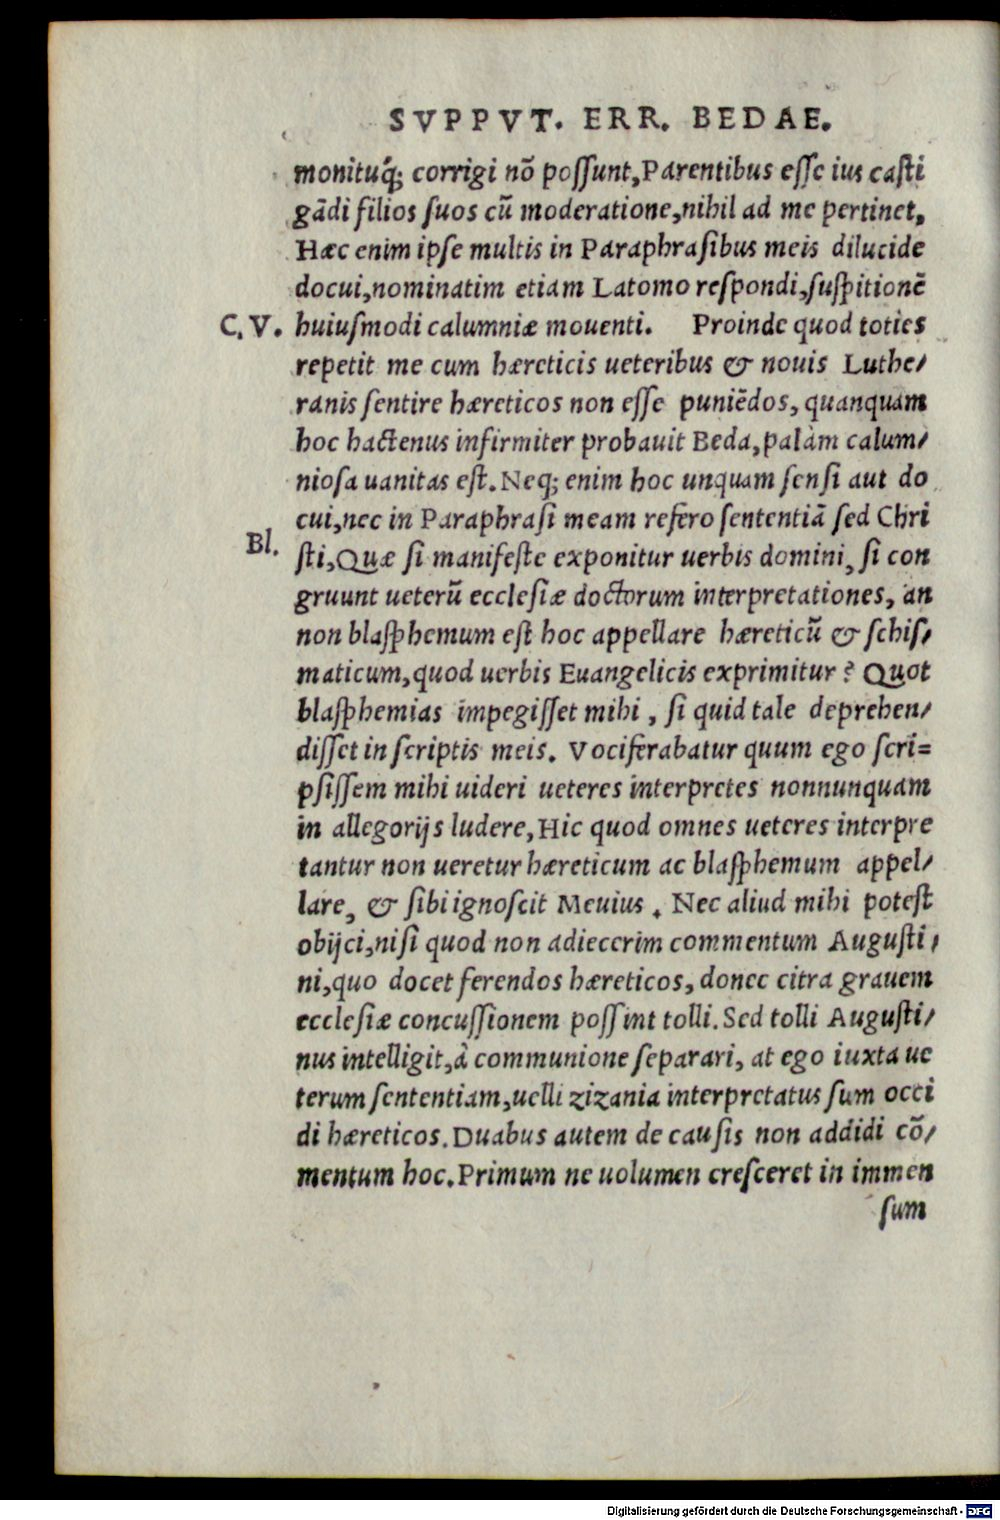 SVPPVT. ERR. BEDAE.
monituq́; corrigi nō possunt, Parentibus esse ius casti
gādi filios suos cū moderatione, nihil ad me pertinet,
Hæc enim ipse multis in Paraphrasibus meis dilucide
docui, nominatim etiam Latomo respondi, suspitionē
C. V. huiusmodi calumniæ mouenti. Proinde quod toties
repetit me cum hæreticis ueteribus & nouis Luthe/
ranis sentire hæreticos non esse puniēdos, quanquam
hoc hactenus infirmiter probauit Beda, palàm calum/
niosa uanitas est. Neq; enim hoc unquam sensi aut do
cui, nec in Paraphrasi meam refero sententiā sed Chri
Bl. sti, Quæ si manifeste exponitur uerbis domini, si con
gruunt ueterū ecclesiæ doctorum interpretationes, an
non blasphemum est hoc appellare hæreticū & schis/
maticum, quod uerbis Euangelicis exprimitur? Quot
blasphemias impegisset mihi, si quid tale deprehen/
disset in scriptis meis. Vociferabatur quum ego scri=
psissem mihi uideri ueteres interpretes nonnunquam
in allegorijs ludere, Hic quod omnes ueteres interpre
tantur non ueretur hæreticum ac blasphemum appel/
lare, & sibi ignoscit Meuius. Nec aliud mihi potest
obijci, nisi quod non adiecerim commentum Augusti/
ni, quo docet ferendos hæreticos, donec citra grauem
ecclesiæ concussionem possint tolli. Sed tolli Augusti/
nus intelligit, à communione separari, at ego iuxta ue
terum sententiam, uelli zizania interpretatus sum occi
di hæreticos. Duabus autem de causis non addidi cō/
mentum hoc. Primum ne uolumen cresceret in immen
sum
Digitalisierung gefördert durch die Deutsche Forschungsgemeinschaft - DFG